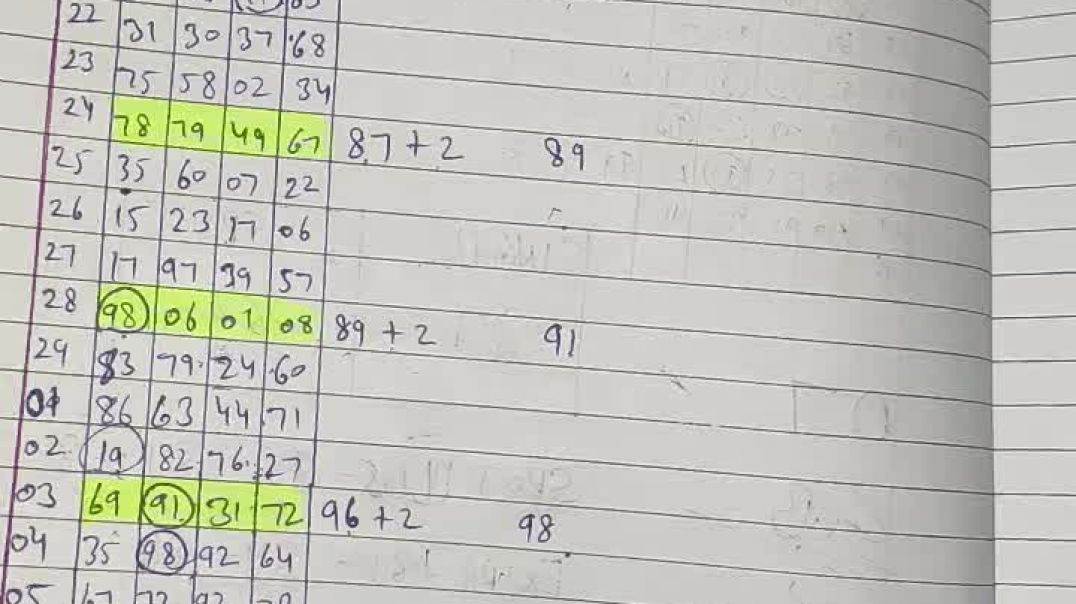 22 31 30 37 68
23 75 58 02 34
24 78 79 49 67 87 + 2 89
25 35 60 07 22
26 15 23 17 06
27 17 97 39 57
28 98 06 01 08 89 + 2 91
29 83 79 24 60
01 86 63 44 71
02 19 82 76 27
03 69 91 31 72 96 + 2 98
04 35 98 92 64
05